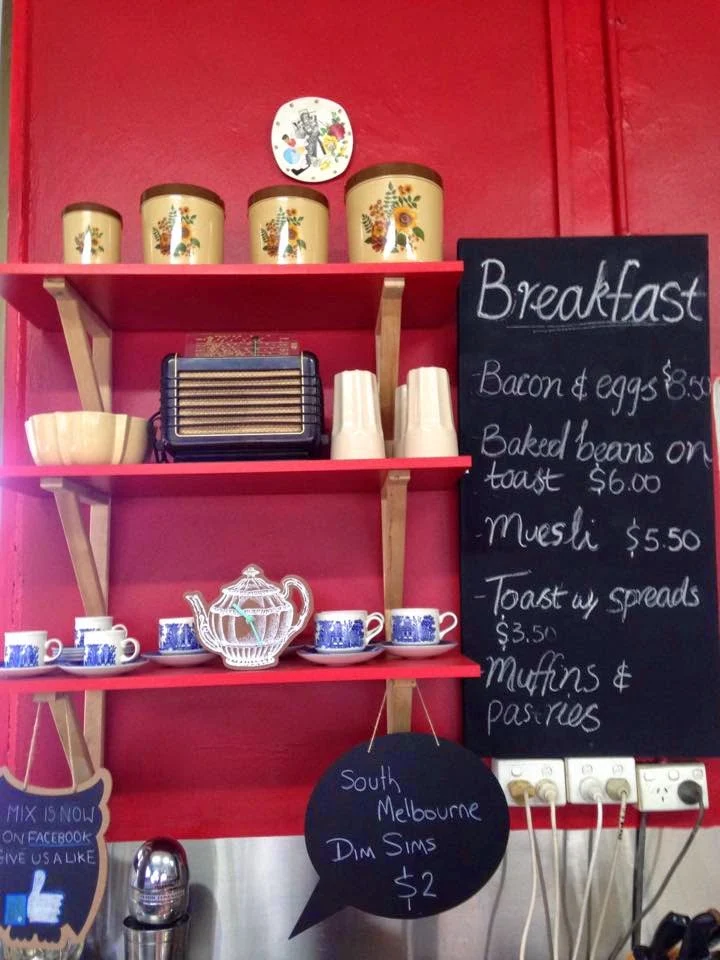 Breakfast
-Bacon & eggs $8.50
-Baked beans on
toast $6.00
-Muesli $5.50
-Toast w/ spreads
$3.50
-Muffins &
pastries
South
Melbourne
Dim Sims
$2
MIX IS NOW
ON FACEBOOK
GIVE US A LIKE